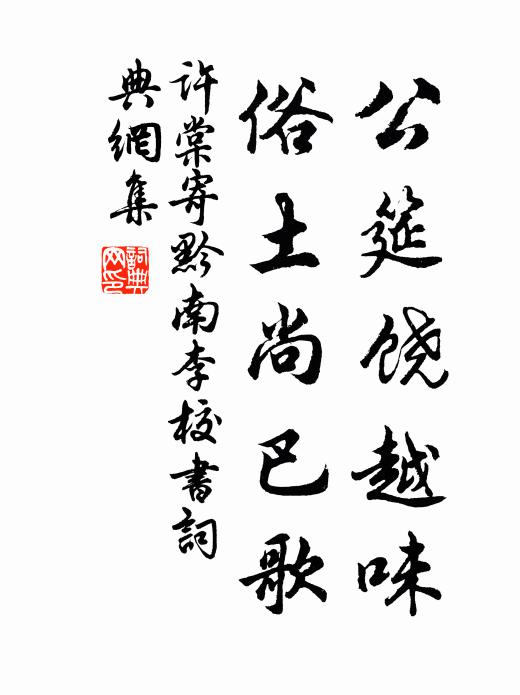 公筵饶越味
俗土尚巴歌
許棠寄黔南李校書詞
典網集
詞典
网印